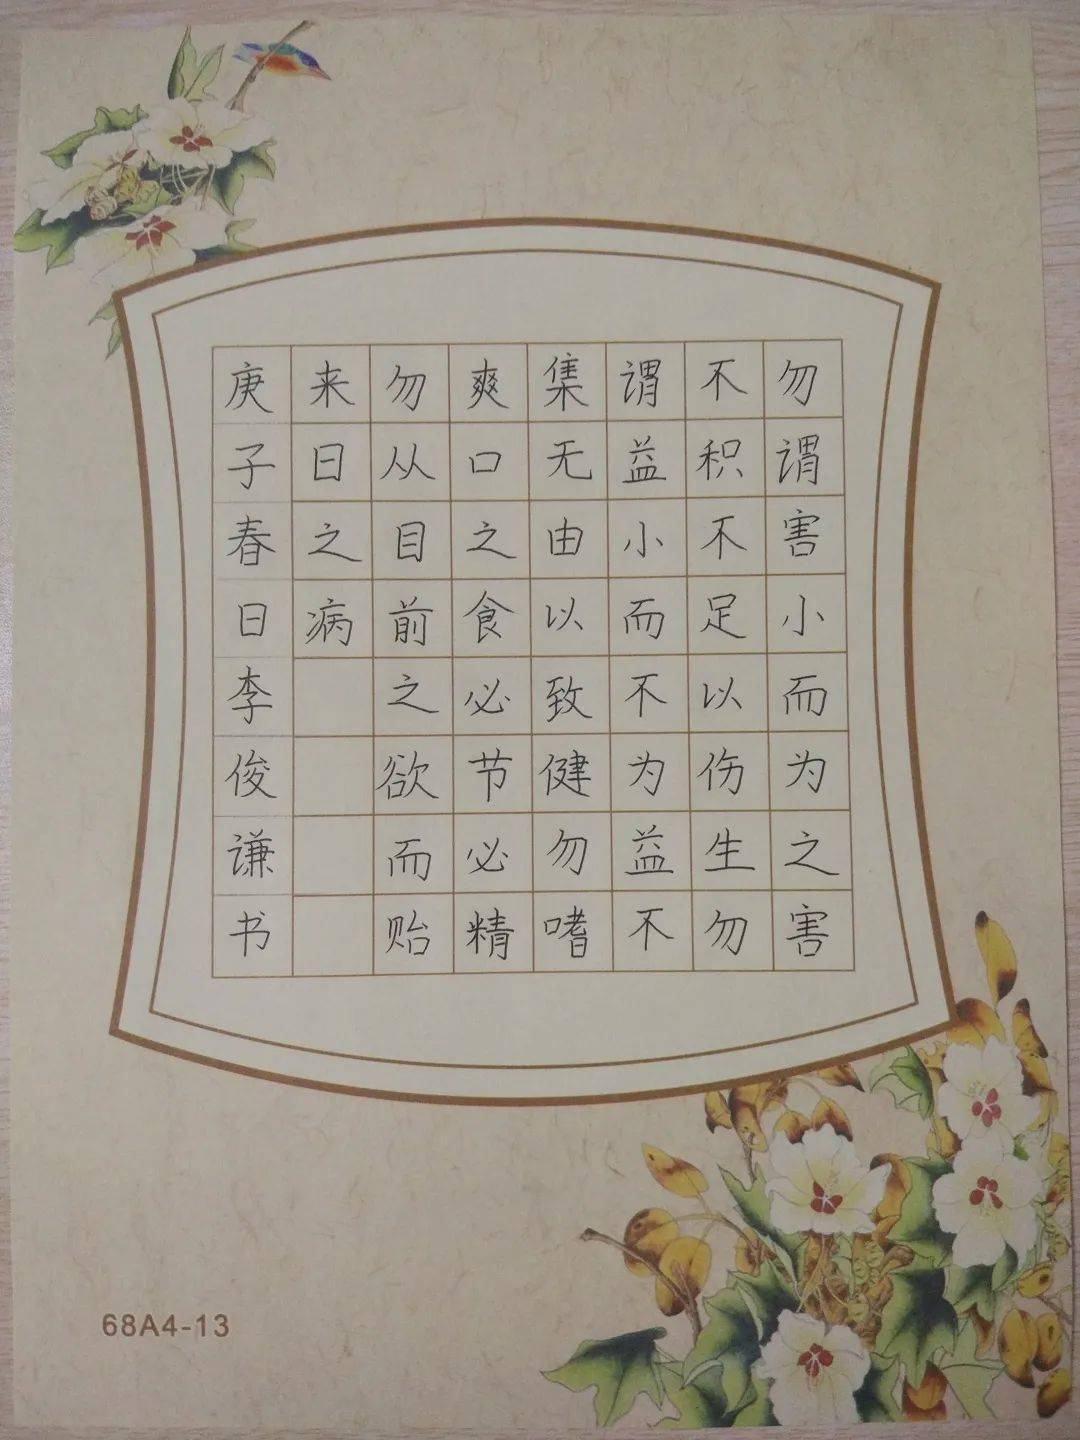 勿谓害小而为之害
不积不足以伤生勿
谓益小而不为益不
集无由以致健勿嗜
爽口之食必节必精
勿从目前之欲而贻
来日之病
庚子春日李俊谦书
68A4-13